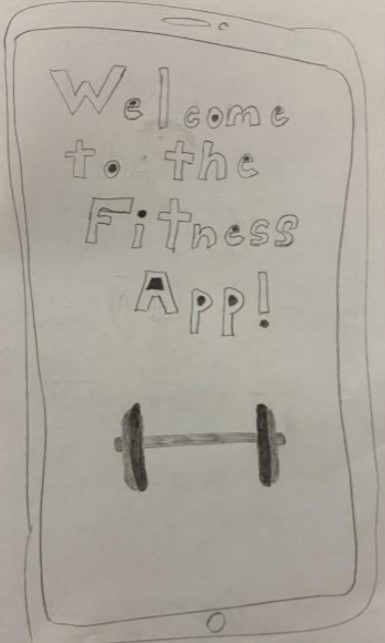 Welcome
to the
Fitness
App!